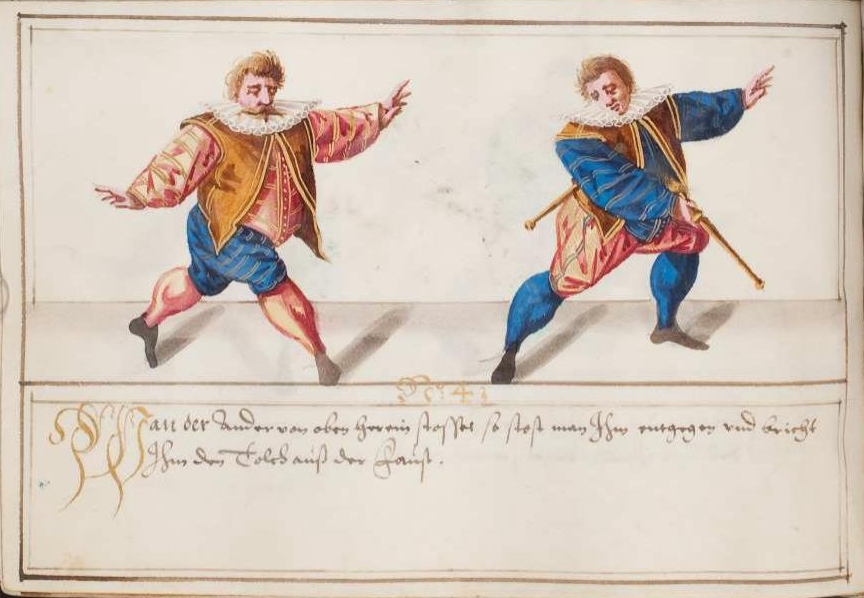 No: 43
Wan der Ander von oben herein stosset so stost man Ihm entgegen vnd bricht
Ihm den Tolch auß der Faust.